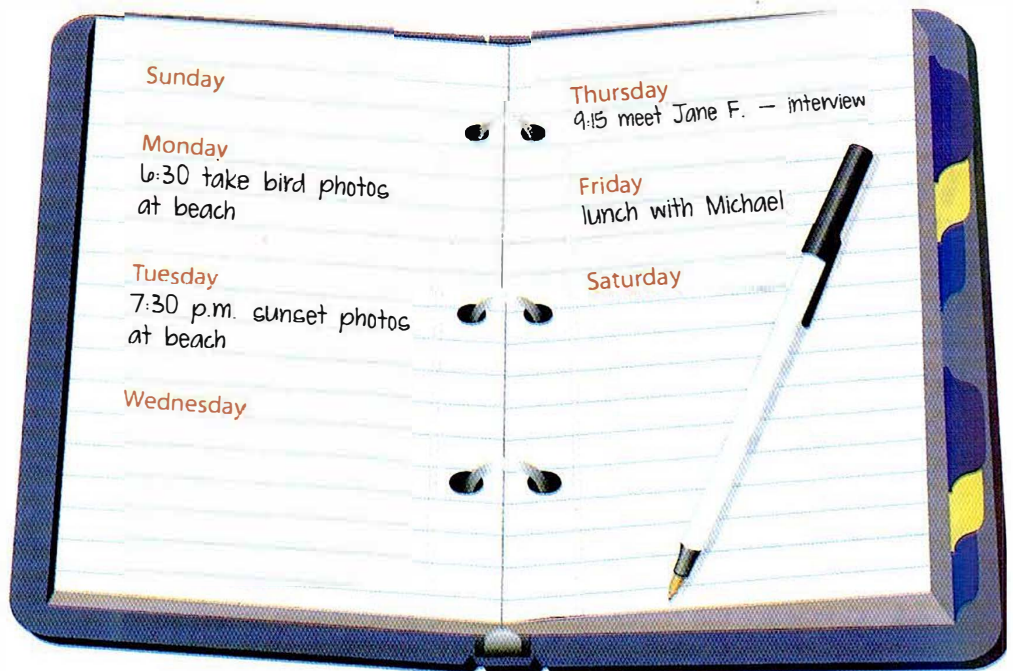 Sunday
Monday
6:30 take bird photos
at beach
Tuesday
7:30 p.m. sunset photos
at beach
Wednesday
Thursday
9:15 meet Jane F. – interview
Friday
lunch with Michael
Saturday